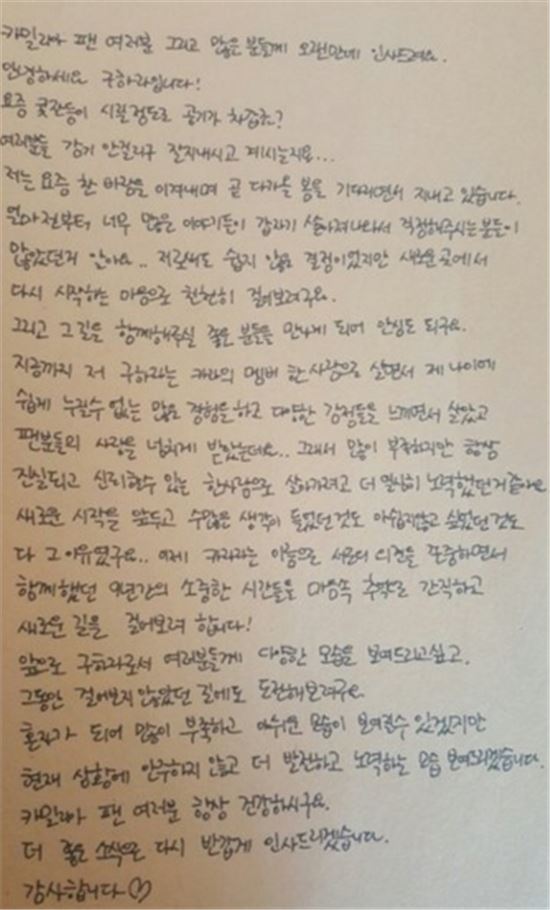 카밀리아 팬 여러분 그리고 많은 분들께 오랜만에 인사드려요.
안녕하세요 구하라입니다!
요즘 콧잔등이 시릴정도로 공기가 차갑죠?
여러분들 감기 안걸리구 잘지내시고 계시는지요...
저는 요즘 찬 바람을 이겨내며 곧 다가올 봄을 기다리면서 지내고 있습니다.
얼마전부터 너무 많은 이야기들이 갑자기 쏟아져나와서 걱정해주시는 분들이
많았던거 알아요.. 저로써도 쉽지 않은 결정이었지만 새로운 곳에서
다시 시작하는 마음으로 천천히 걸어보려구요.
그리고 그 길을 함께해주실 좋은 분들을 만나게 되어 안심도 되구요.
지금까지 저 구하라는 카라의 멤버 한 사람으로 살면서 제 나이에
쉽게 누릴수 없는 많은 경험을하고 다양한 감정들을 느끼면서 살았고
팬분들의 사랑을 넘치게 받았는데요.. 그래서 많이 부족하지만 항상
진실되고 신뢰할수 있는 한사람으로 살아가려고 더 열심히 노력했던거같아요
새로운 시작을 앞두고 수많은 생각이 들었던 것도 아쉽지않고 싶었던 것도
다 그 이유였구요.. 이제 카라라는 이름으로 서로의 의견을 존중하면서
함께했던 9년간의 소중한 시간들을 마음속 추억으로 간직하고
새로운 길을 걸어보려 합니다!
앞으로 구하라로서 여러분들께 다양한 모습을 보여드리고싶고,
그동안 걸어보지 않았던 길에도 도전해보려구요.
혼자가 되어 많이 부족하고 아쉬운 모습이 보여질수 있겠지만
현재 상황에 안주하지 않고 더 발전하고 노력하는 모습 보여드리겠습니다.
카밀리아 팬 여러분 항상 건강하시구요.
더 좋은 소식으로 다시 반갑게 인사드리겠습니다.
감사합니다♡